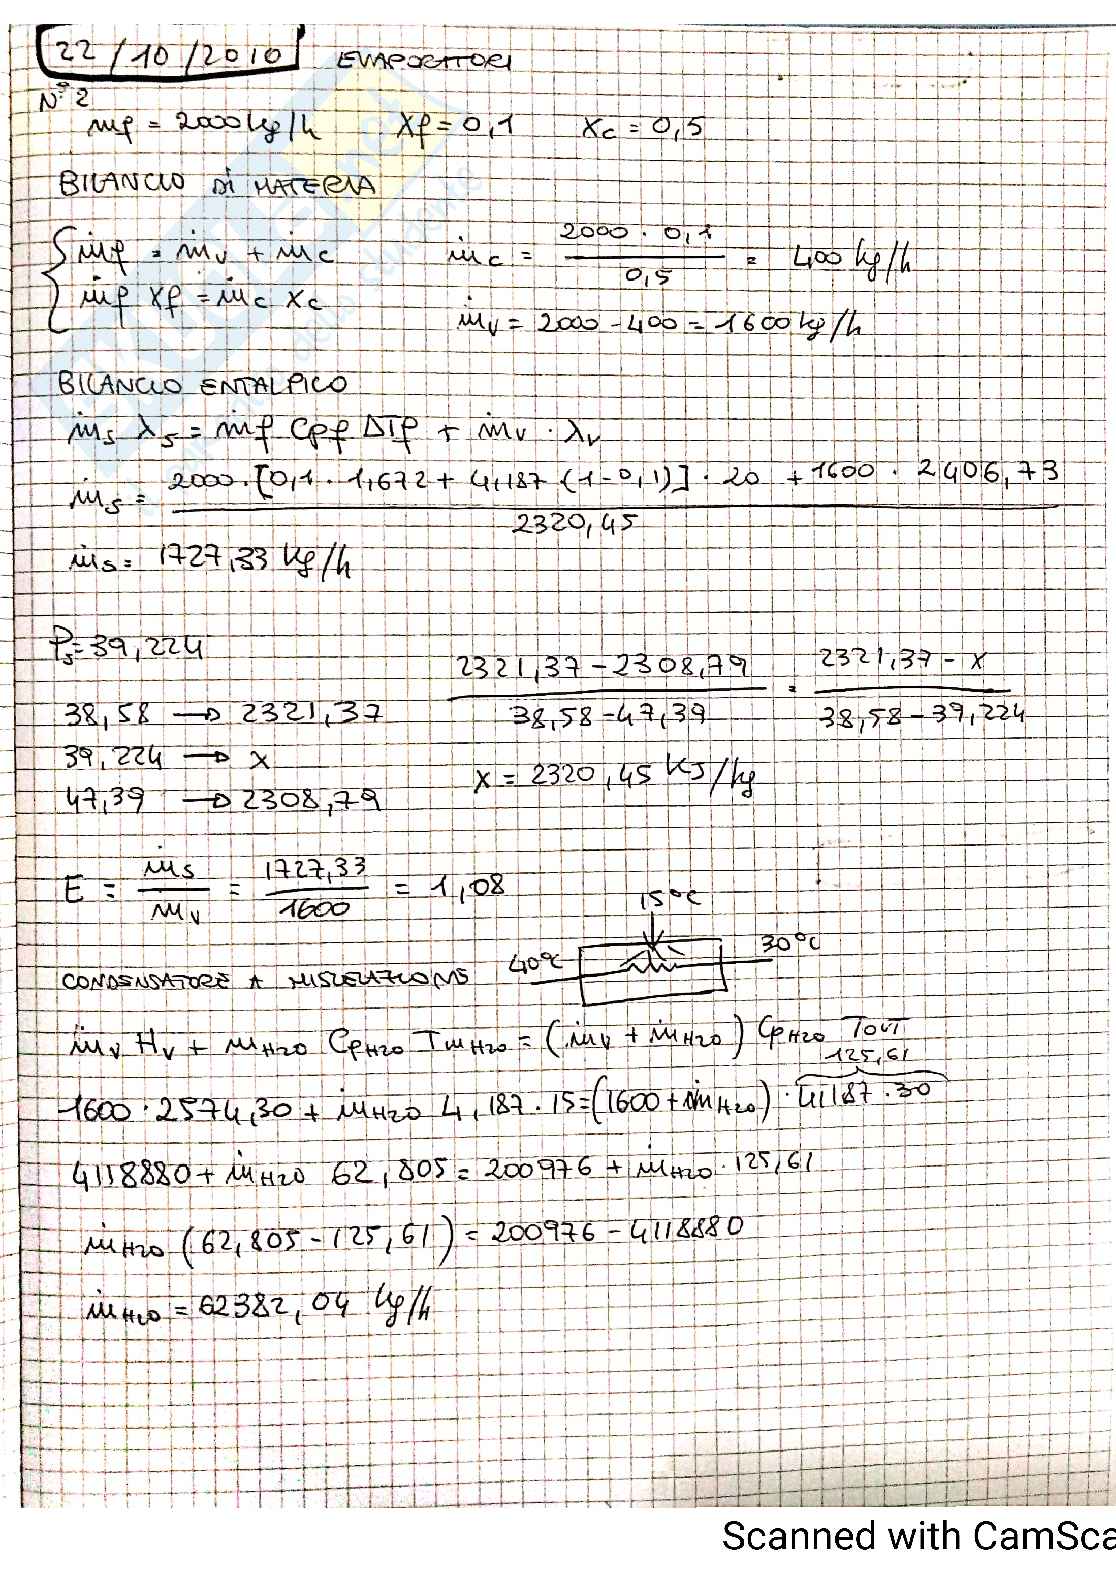 22/10/2010 EVAPORATORI
N°2
ṁf = 2000 kg/h Xf = 0,1 Xc = 0,5
BILANCIO DI MATERIA
{ ṁf = ṁv + ṁc ṁc = 2000 · 0,1 / 0,5 = 400 kg/h
ṁf Xf = ṁc Xc
ṁv = 2000 - 400 = 1600 kg/h
BILANCIO ENTALPICO
ṁs λs = ṁf Cpf ΔTf + ṁv · λv
ṁs = 2000 · [0,1 · 1,672 + 4,187 (1-0,1)] · 20 + 1600 · 2406,73 / 2320,45
ṁs = 1727,33 Kg/h
Ps = 39,224
38,58 → 2321,37
39,224 → x
47,39 → 2308,79
2321,37 - 2308,79 / 38,58 - 47,39 = 2321,37 - x / 38,58 - 39,224
x = 2320,45 KJ/kg
E = ṁs / ṁv = 1727,33 / 1600 = 1,08
15°C
40°C 30°C
CONDENSATORE A MISCELAZIONE
ṁv Hv + ṁH20 CpH20 TinH20 = (ṁv + ṁH20) CpH20 TOUT
125,61
1600 · 2574,30 + ṁH20 4,187 · 15 = (1600 + ṁH20) · 4,187 · 30
4118880 + ṁH20 62,805 = 200976 + ṁH20 · 125,61
ṁH20 (62,805 - 125,61) = 200976 - 4118880
ṁH20 = 62382,04 kg/h
Scanned with CamSca